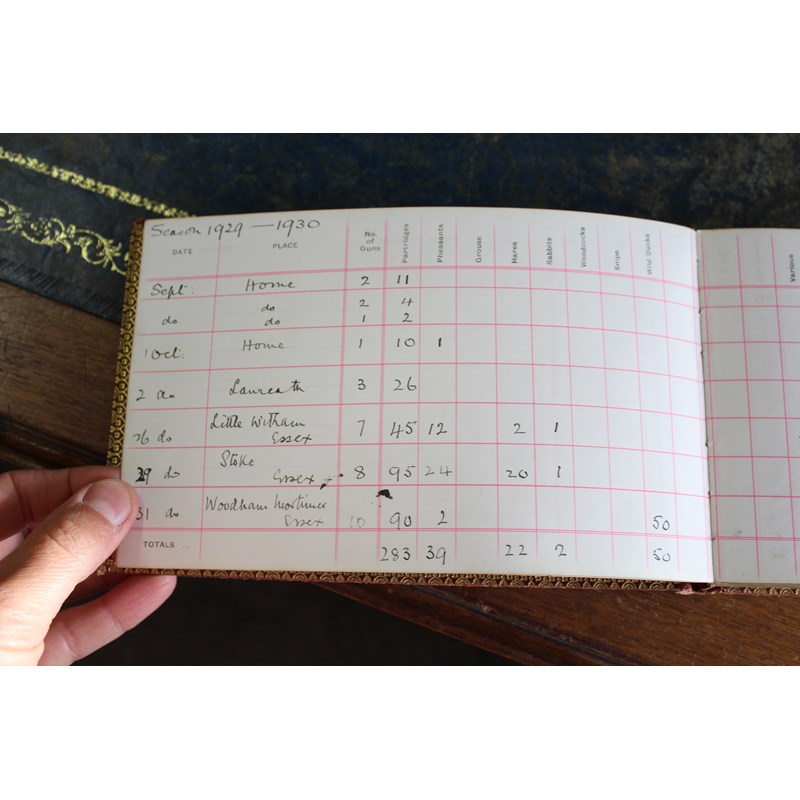 Season 1929 — 1930
DATE PLACE No. of Guns Partridges Pheasants Grouse Hares Rabbits Woodcocks Snipe Wild Ducks Various
Sept. Home 2 11
do 2 4
do do 1 2
1 Oct. Home 1 10 1
2 do 3 26
26 do Little Witham Essex 7 45 12 2 1
29 do Stoke Essex 8 95 24 20 1
31 do Woodham Mortimer Essex 10 90 2 50
TOTALS ... 283 39 22 2 50